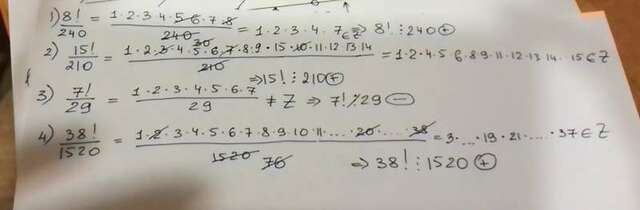 1) 8!/240 = 1·2·3·4·5·6·7·8/240 30 = 1·2·3·4·7∈Z ⇒ 8!⋮240 ⊕
2) 15!/210 = 1·2·3·4·5·6·7·8·9·15·10·11·12 13 14/210 = 1·2·4·5 6·8 9·11·12·13·14· 15∈Z
⇒15!⋮210 ⊕
3) 7!/29 = 1·2·3·4·5·6·7/29 ≠ Z ⇒ 7!⋮̸29 ⊖
4) 38!/1520 = 1·2·3·4·5·6·7·8·9·10·11·...·20·...·38/1520 76 = 3·...·19·21·...·37∈Z
⇒ 38!⋮1520 ⊕